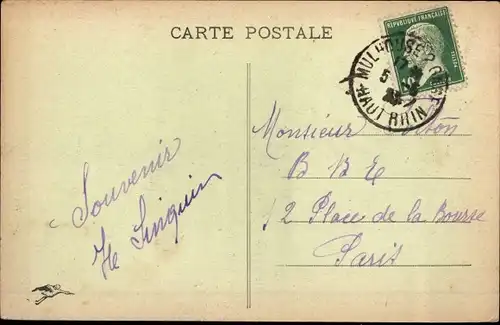 CARTE POSTALE
RÉPUBLIQUE FRANÇAISE
MULHOUSE
17
5
HAUT RHIN
Souvenir
Monsieur
B B E
12 Place de la Bourse
Paris